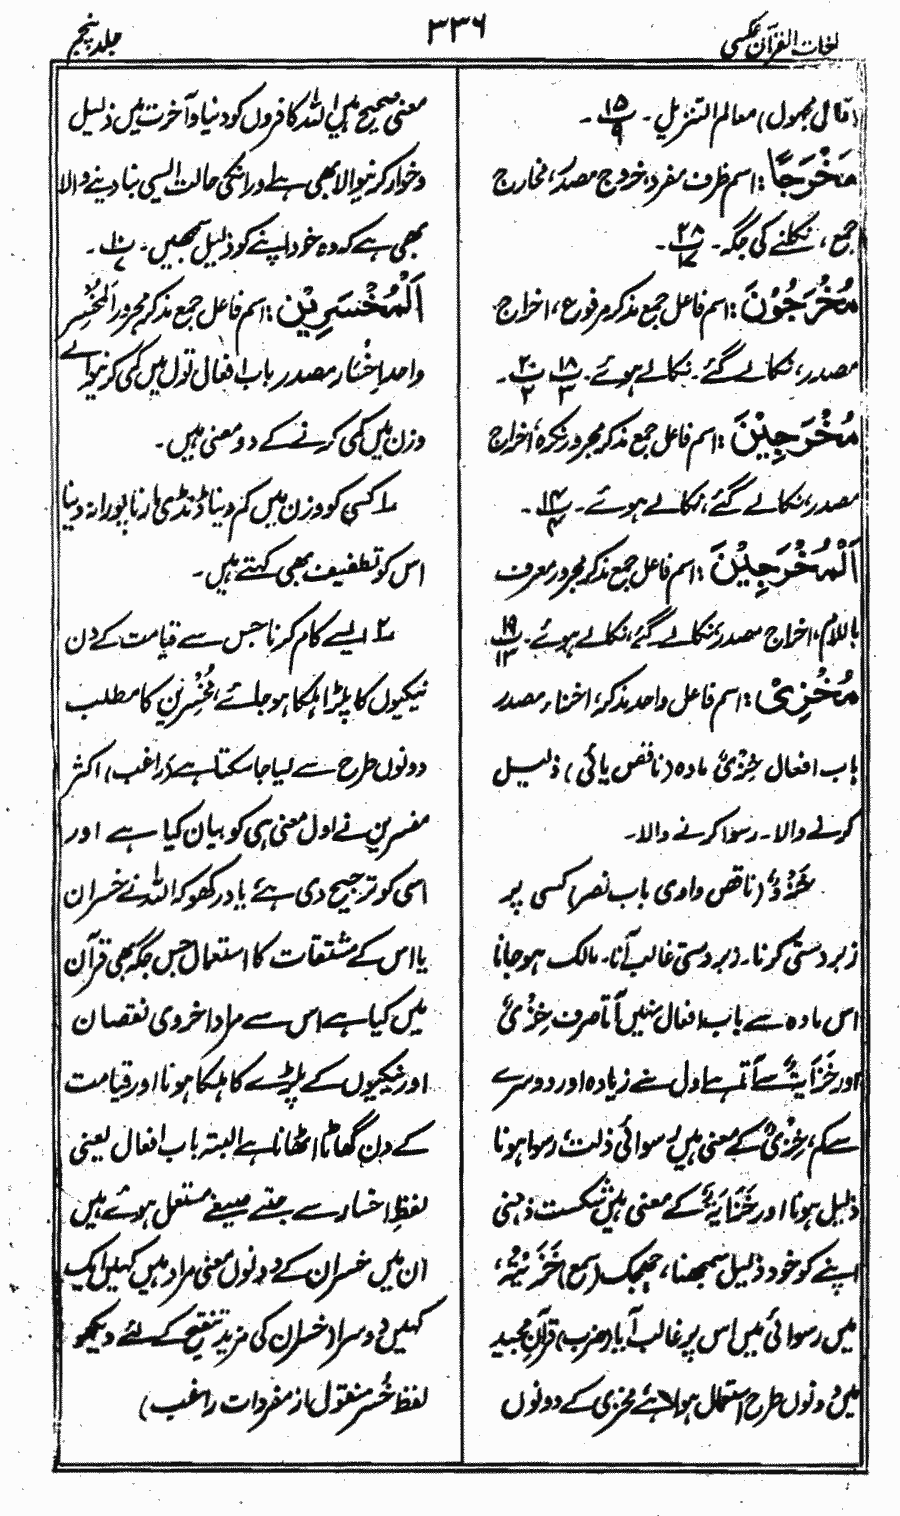 لغات القرآن عکسی
۳۳۶
جلد پنجم
(قال مجہول) معالم التنزیل۔ ۱۵/۹ ۔
مَخْرَجًا: اسم ظرف مفرد، خروج مصدر، مخارج
جمع، نکلنے کی جگہ۔ ۲۸/۱۷ ۔
مُخْرَجُوْنَ: اسم فاعل جمع مذکر مرفوع، اخراج
مصدر، نکالے گئے۔ نکالے ہوئے۔ ۱۸/۳ ۲۰/۲ ۔
مُخْرَجِیْنَ: اسم فاعل جمع مذکر مجرور نکرہ، اخراج
مصدر، نکالے گئے، نکالے ہوئے۔ ۱۴/۴ ۔
اَلْمُخْرَجِیْنَ: اسم فاعل جمع مذکر مجرور معرف
باللام، اخراج مصدر، نکالے گئے، نکالے ہوئے۔ ۱۹/۱۳
مُخْزِیْ: اسم فاعل واحد مذکر، اخزاء مصدر
باب افعال خِزْیٌ مادہ (ناقص یائی) ذلیل
کرنے والا۔ رسوا کرنے والا۔
خَزْوٌ (ناقص واوی باب نصر) کسی پر
زبردستی کرنا۔ زبردستی غالب آنا۔ مالک ہو جانا
اس مادہ سے باب افعال نہیں آتا صرف خِزْیٌ
اور خَزَایَۃٌ سے آتا ہے اول سے زیادہ اور دوسرے
سے کم، خِزْیٌ کے معنی ہیں رسوائی ذلت، رسوا ہونا
ذلیل ہونا اور خَزَایَۃٌ کے معنی ہیں شکست ذہنی
اپنے کو خود ذلیل سمجھنا، جھجک (سمع) خَزَیْتُہٗ،
میں رسوائی میں اس پر غالب آیا (ضرب) قرآن مجید
میں دونوں طرح استعمال ہوا ہے مخزی کے دونوں
معنی صحیح ہیں اللہ کافروں کو دنیا و آخرت میں ذلیل
و خوار کرنیوالا بھی ہے اور انکی حالت ایسی بنا دینے والا
بھی ہے کہ وہ خود اپنے کو ذلیل سمجھیں۔ ۱۰/۷ ۔
اَلْمُخْسِرِیْنَ: اسم فاعل جمع مذکر مجرور اَلْمُخْسِر
واحد اِخْسَار مصدر باب افعال تول میں کمی کرنیوالے
وزن میں کمی کرنے کے دو معنی ہیں۔
۱ کسی کو وزن میں کم دینا ڈنڈی مارنا پورا نہ دینا
اس کو تطفیف بھی کہتے ہیں۔
۲ ایسے کام کرنا جس سے قیامت کے دن
نیکیوں کا پلڑا ہلکا ہو جائے، مُخْسِرِیْن کا مطلب
دونوں طرح سے لیا جا سکتا ہے (راغب) اکثر
مفسرین نے اول معنی ہی کو بیان کیا ہے اور
اسی کو ترجیح دی ہے یاد رکھو کہ اللہ نے خسران
یا اس کے مشتقات کا استعمال جس جگہ بھی قرآن
میں کیا ہے اس سے مراد اخروی نقصان
اور نیکیوں کے پلڑے کا ہلکا ہونا اور قیامت
کے دن گھاٹا اٹھانا ہے البتہ باب افعال یعنی
لفظ اخسار سے جتنے صیغے مستعمل ہوئے ہیں
ان میں خسران کے دونوں معنی مراد ہیں کہیں ایک
کہیں دوسرا (خسران کی مزید تنقیح کے لئے دیکھو
لفظ خُسْر منقول از مفردات راغب)